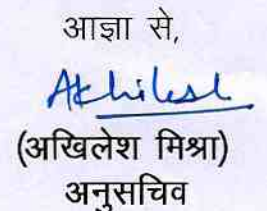 आज्ञा से,
Akhilesh
(अखिलेश मिश्रा)
अनुसचिव